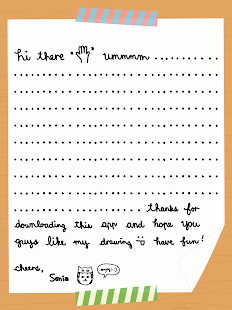 hi there "👋" ummmm ..................
thanks for
downloading this app and hope you
guys like my drawing ☺ have fun!
cheers,
Sonia